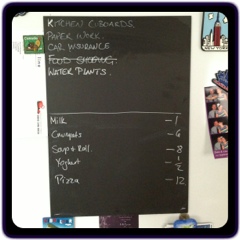 KITCHEN CUBOARDS.
PAPER WORK.
CAR INSURANCE
FOOD SHOPPING.
WATER PLANTS.
Milk - 1
- 6
Soup & Roll. - 8
Yoghurt - 1/2
Pizza - 12
NEW YORK